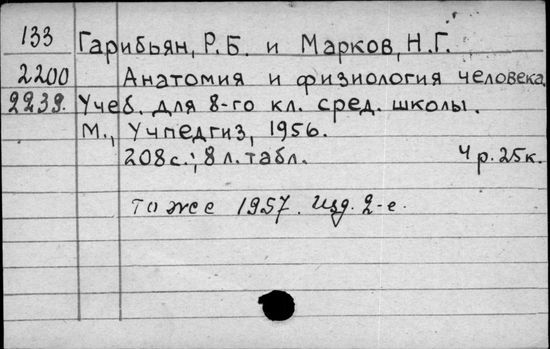 133 Гарибьян, Р.Б. и Марков, Н.Г.
2200 Анатомия и физиология человека.
2239. Учеб. для 8-го кл. сред. школы.
М., Учпедгиз, 1956.
208с.; 8 л. табл. 4 р. 25к.
То же 1957. Изд. 2-е.